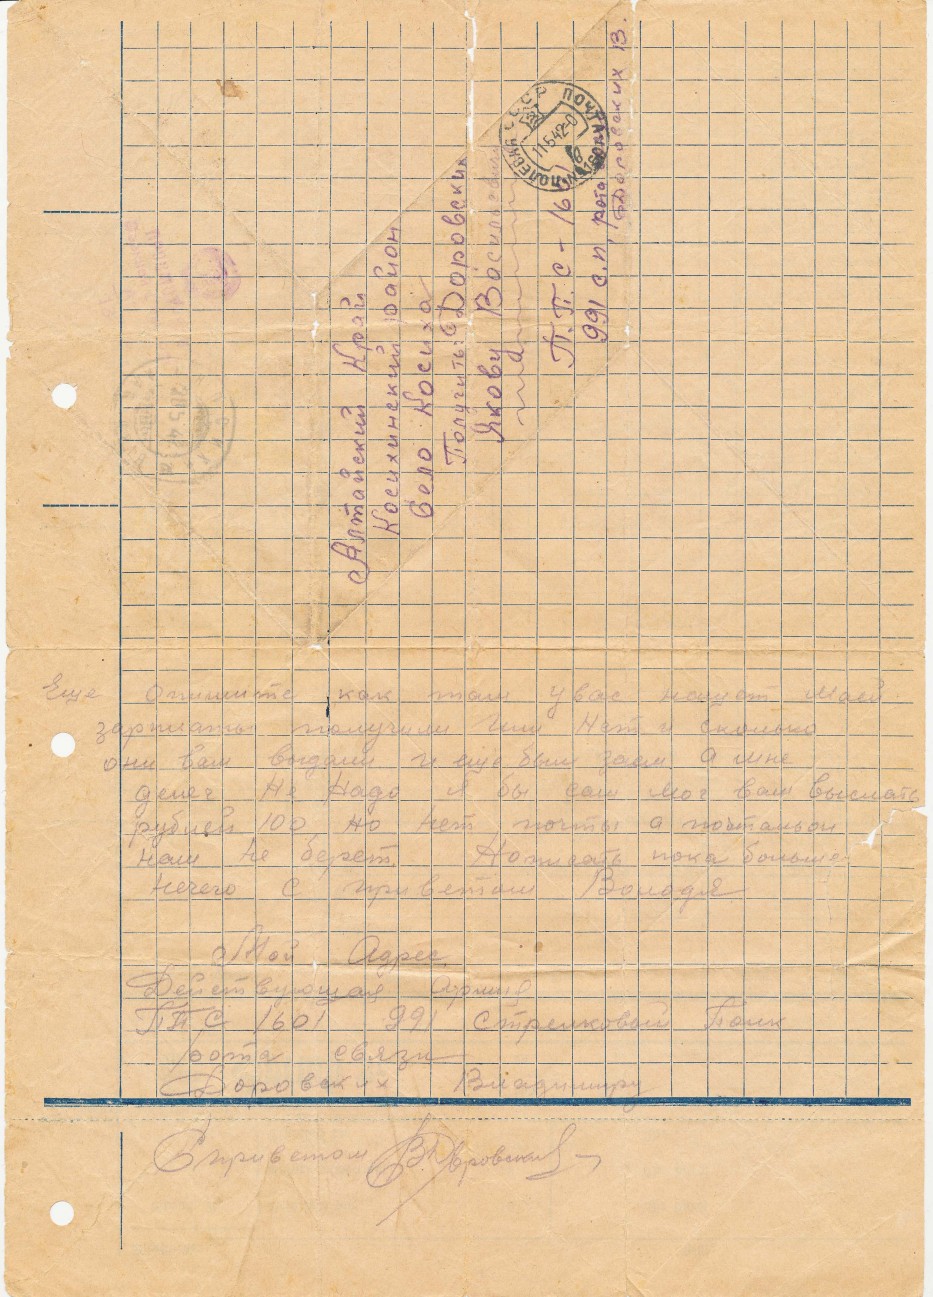 Алтайский Край
Косихинский район
Село Косиха
Получить: Доровских
Якову Васильевичу
П.П.С - 1601
991 с.п, рота связи
Доровских В.
ПОЛЕВАЯ ПОЧТА СССР
11.5.42
Еще опишите как там у вас нащот маей
зарплаты получили или Нет и сколько
они вам выдали и еще был заем а мне
денег Не Надо я бы сам мог вам выслать
рублей 100, но нет почты а почтальон
наш не берет. Написать пока больше
нечего С приветом Володя
Мой Адрес
Действующая Армия
ППС 1601 991 Стрелковый Полк
рота связи
Доровских Владимиру
С приветом В. Доровских